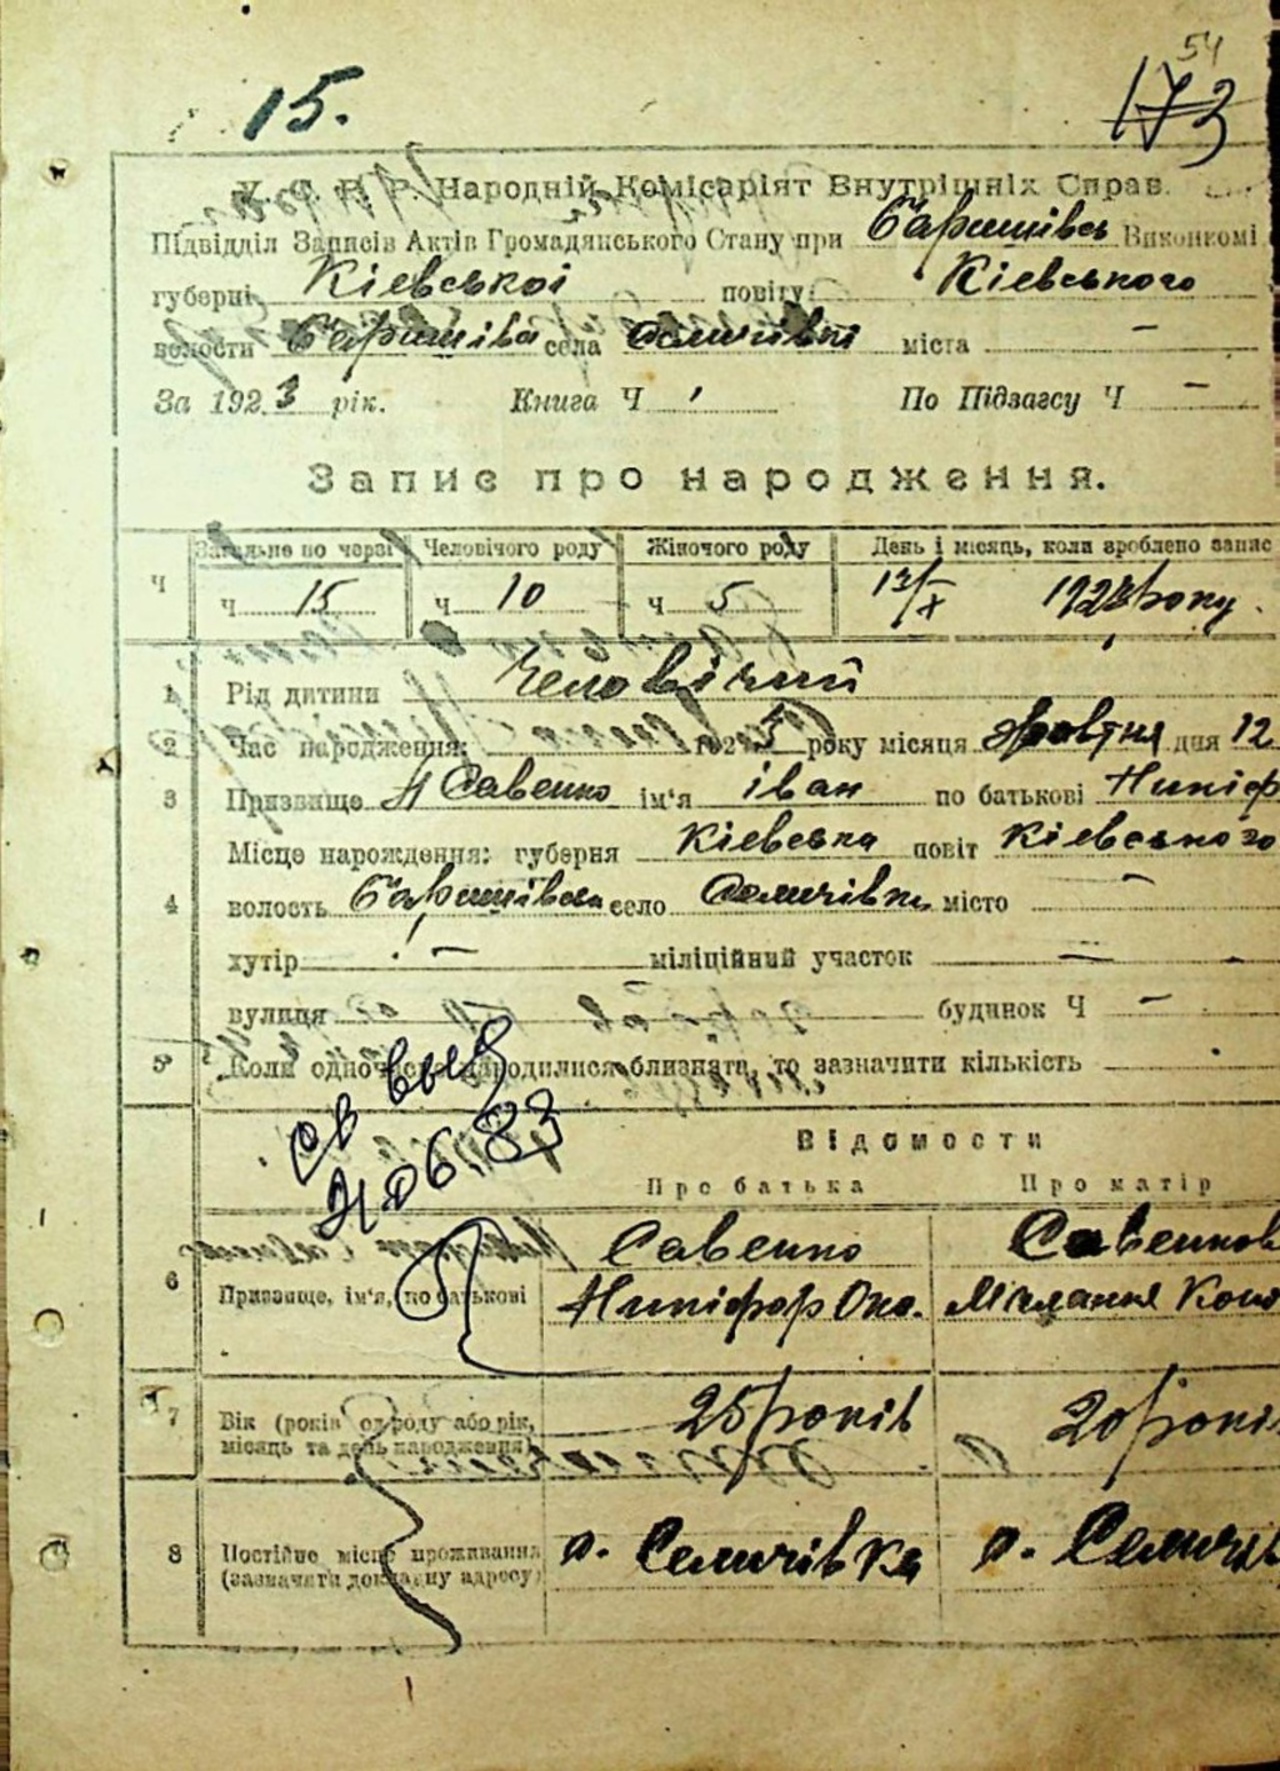 54
15.
173
У. С. Р. Р. Народній Комісаріят Внутрішніх Справ.
Підвідділ Записів Актів Громадянського Стану при Баришівсь Виконкомі
губерні Кіевськоі повіту Кіевського
волости Баришівса села Селичівкі міста —
За 1923 рік. Книга Ч По Підзагсу Ч —
Запис про народження.
Загально по черзі Человічого роду Жіночого роду День і місяць, коли зроблено запис
Ч ч 15 ч 10 ч 5 13/X 1923 року.
1 Рід дитини Человічий
2 Час народження: 1923 року місяця Жовтня дня 12
3 Призвище Савенко ім'я іван по батькові Никіф
Місце народження: губерня Кіевська повіт Кіевського
4 волость Баришівська село Селичівка місто —
хутір — міліційний участок —
вулиця будинок Ч —
5 Коли одночасно народилися близнята, то зазначити кількість
св выд
21 06 83
Відомости
Про батька Про матір
Савенко Савенков
6 Призвище, ім'я, по батькові Никіфор Оно. Міланья Конд
7 Вік (років од роду або рік, 25 років 20 рокі
місяць та день народження)
8 Постійне місце проживання с. Селичівка с. Селичів
(зазначити докладну адресу)